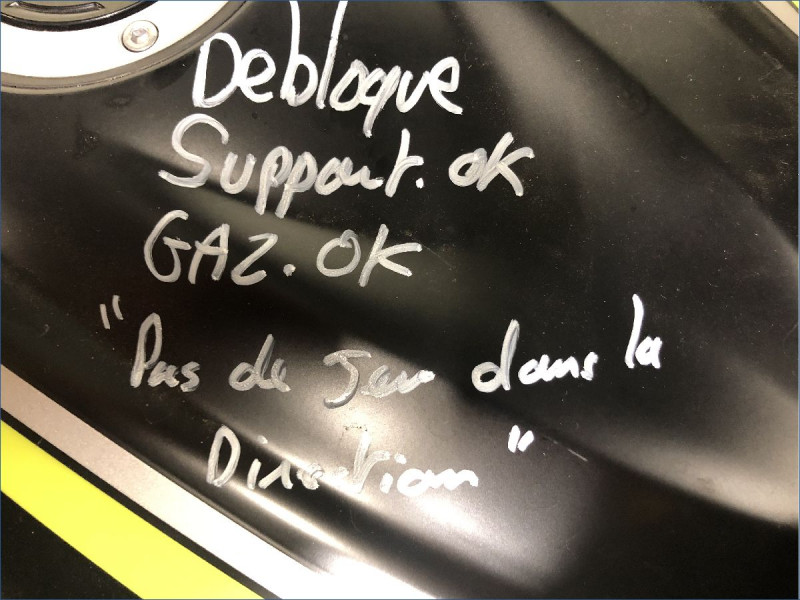 Debloque
Support. OK
GAZ. OK
"Pas de Jeu dans la
Direction"